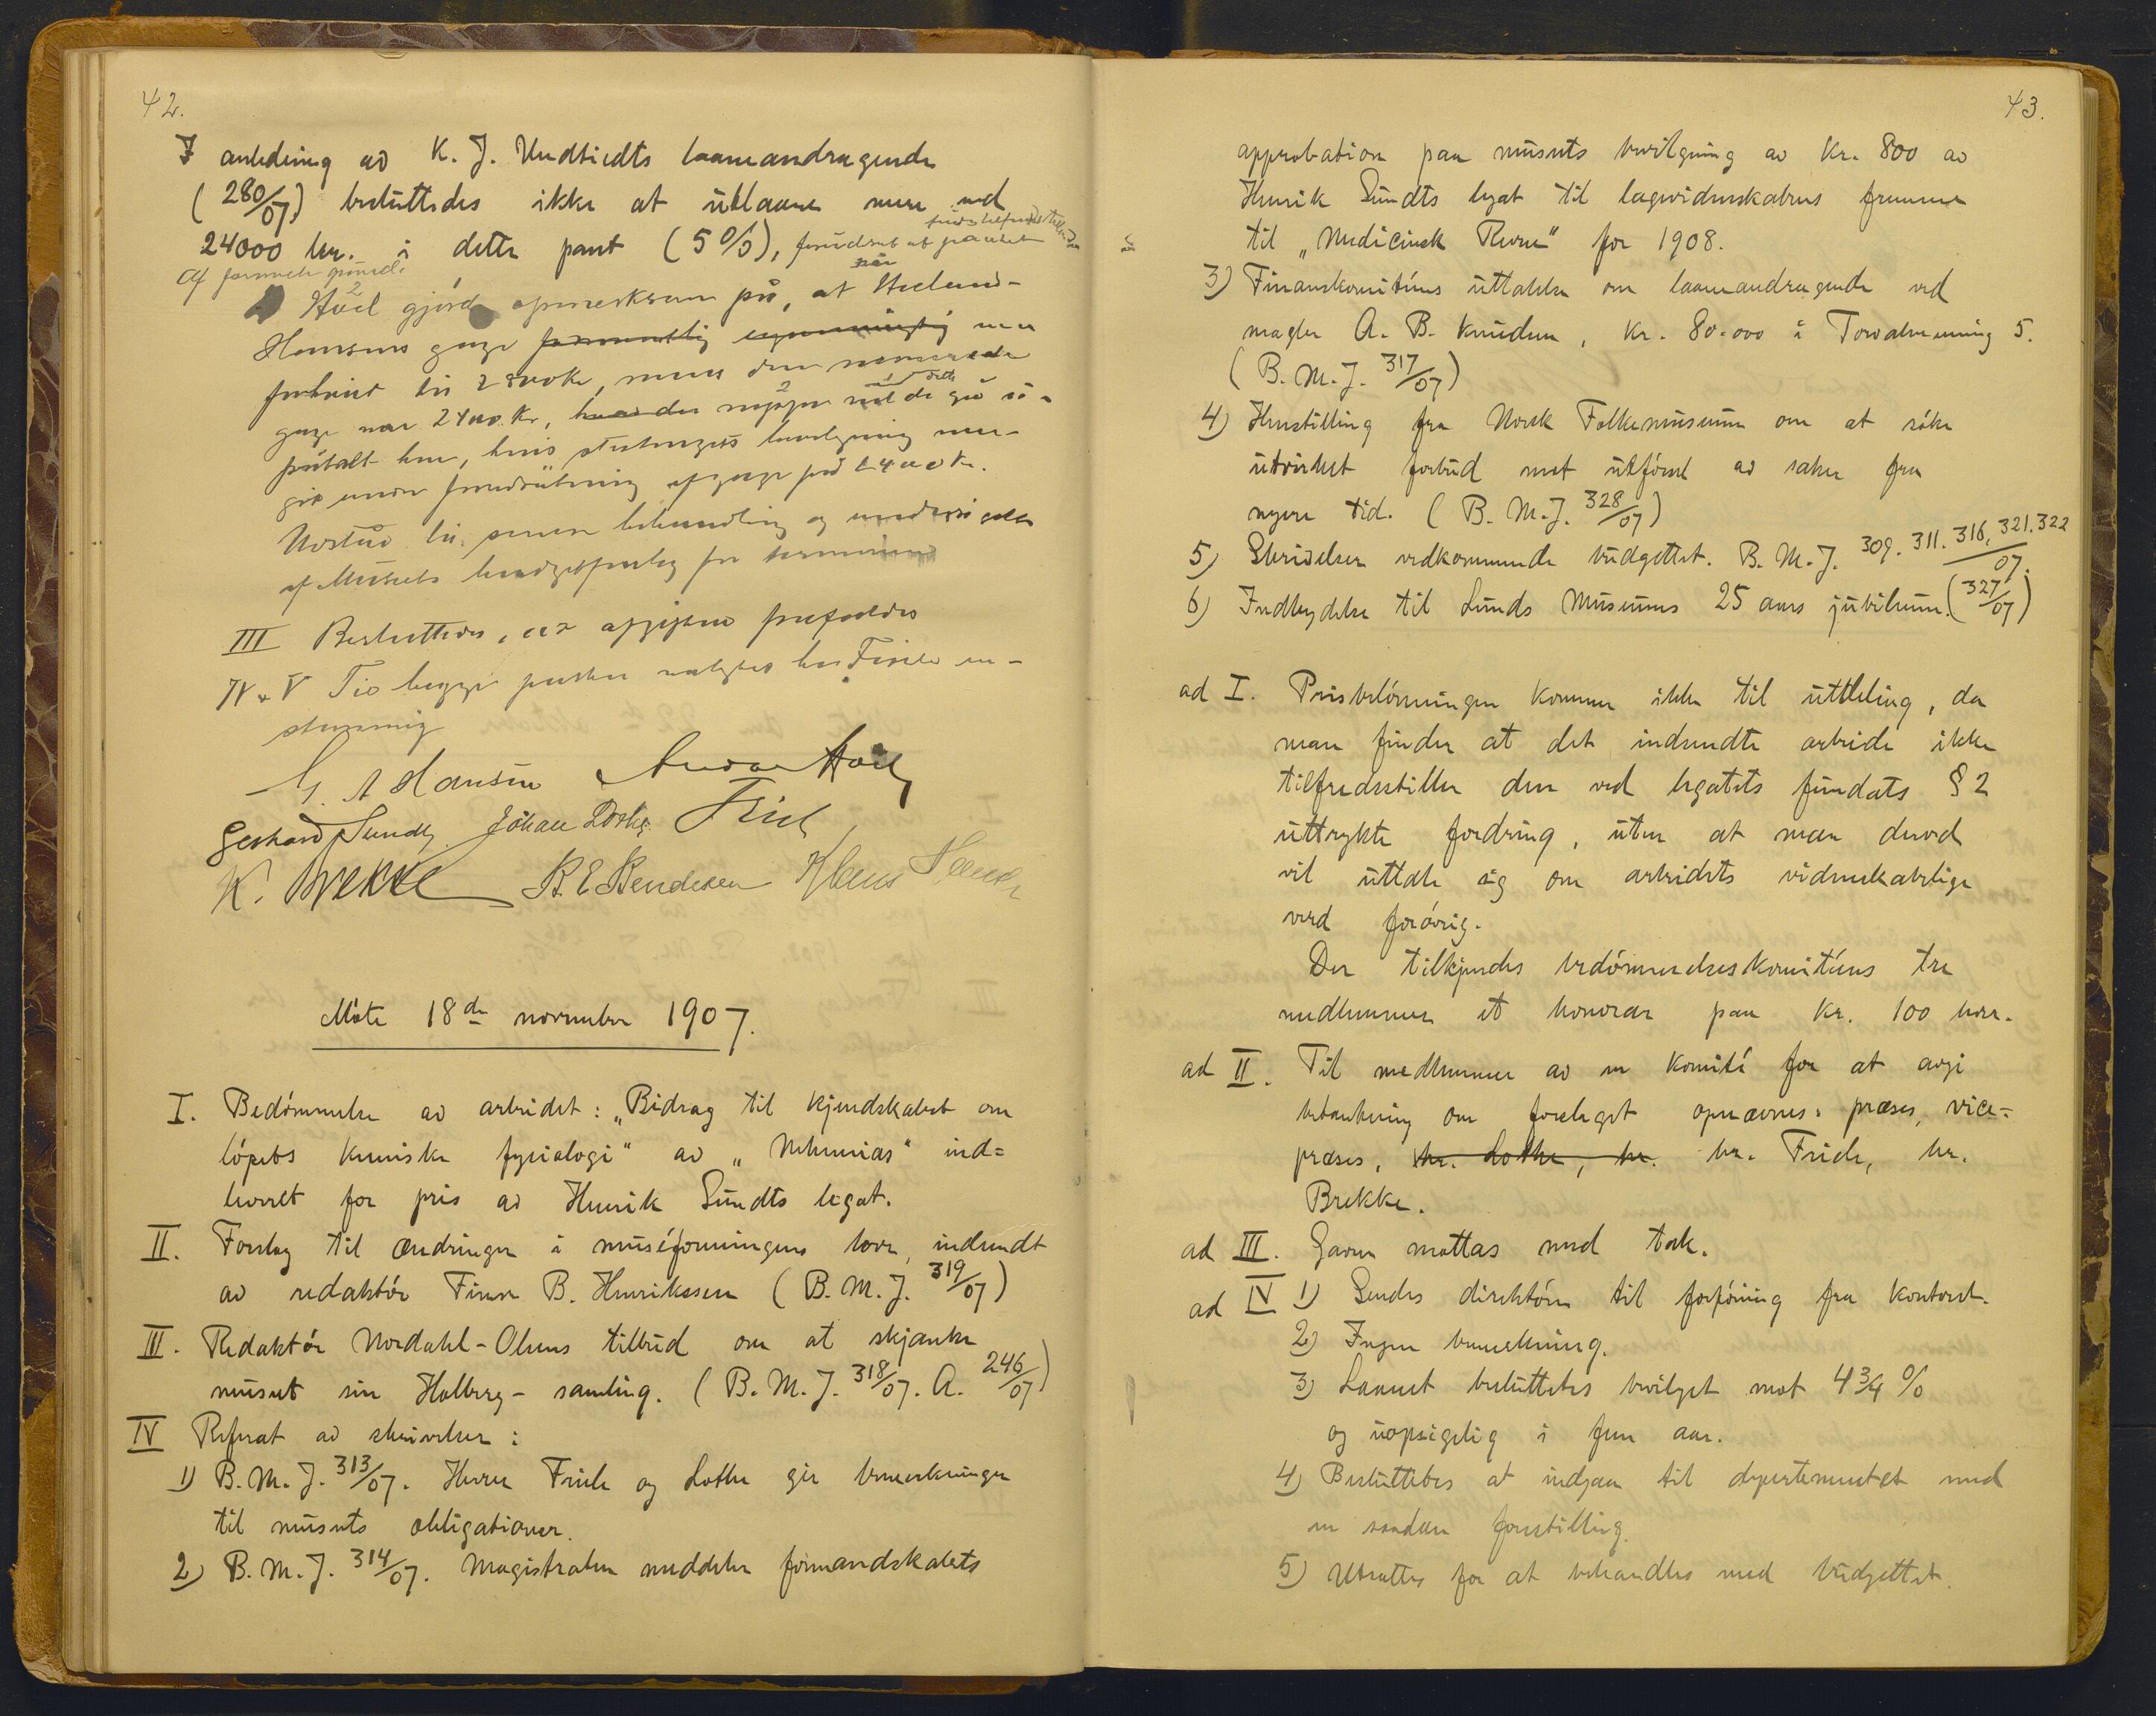 42.
I anledning av K. J. Undtiedts laaneandragende
(280/07) besluttedes ikke at utlaane mere end
24000 kr. i dette pant (5%), forudsat at pantet
Høel gjorde opmerksom på, at Helland-
Hansens gage var
forhøiet til 2800 Kr, mens den
gage var 2400 Kr,
påtalt her, hvis bevilgning
under forudsætning af gage på 2400 Kr.
Utstod til senere behandling og
af Museets budgetforslag for terminen
III Besluttedes, at avgiften frafaldes
IV & V Til begge poster valgtes hr. Friele en-
stemmig
G. A Hansen
Gerhard Sundt Johan Lothe Friele
K. Brekke B. E. Bendixen Klaus Hanssen
Møte 18de november 1907.
I. Bedømmelse av arbeidet: „Bidrag til kjendskabet om
løpets kemiske fysiologi" av „Nehemias" ind=
leveret for pris av Henrik Sundts legat.
II. Forslag til ændringer i muséforeningens love, indsendt
av redaktør Finn B. Henrikssen (B. M. J. 319/07)
III. Redaktør Nordahl-Olsens tilbud om at skjænke
museet sin Holberg-samling. (B. M. J. 318/07. A. 246/07)
IV Referat av skrivelser:
1) B. M. J. 313/07. Herrer Friele og Lothe gir bemerkninger
til museets obligationer.
2) B. M. J. 314/07. Magistraten meddeler formandskabets
43.
approbation paa museets bevilgning av kr. 800 av
Henrik Sundts legat til lægevidenskabens fremme
til „Medicinsk Revue" for 1908.
3) Finanskomitéens uttalelse om laaneandragende ved
megler A. B. Knudsen, kr. 80.000 i Torvalmenning 5.
(B. M. J. 317/07)
4) Henstilling fra Norsk Folkemuseum om at søke
utvirket forbud mot utførsel av saker fra
nyere tid. (B. M. J. 328/07)
5) Skrivelser vedkommende budgettet. B. M. J. 309. 311. 316, 321. 322/07.
6) Indbydelse til Lunds Museums 25 aars jubilæum. (327/07)
ad I. Prisbelønningen kommer ikke til uttdeling, da
man finder at det indsendte arbeide ikke
tilfredsstiller den ved legatets fundats § 2
uttrykte fordring, uten at man derved
vil uttale sig om arbeidets videnskabelige
verd forøvrig.
Der tilkjendes bedømmelseskomitéens tre
medlemmer et honorar paa kr. 100 hver.
ad II. Til medlemmer av en komité for at avgi
betænkning om forslaget opnævnes: præses, vice-
præses, hr. Lothe, hr. hr. Friele, hr.
Brekke.
ad III. Gaven mottas med tak.
ad IV 1) Sendes direktøren til forføining fra kontoret.
2) Ingen bemerkning.
3) Laanet besluttedes bevilget mot 4 3/4 %
og uopsigelig i fem aar.
4) Besluttedes at indgaa til departementet med
en saadan forestilling.
5) Utsattes for at behandles med budgettet.